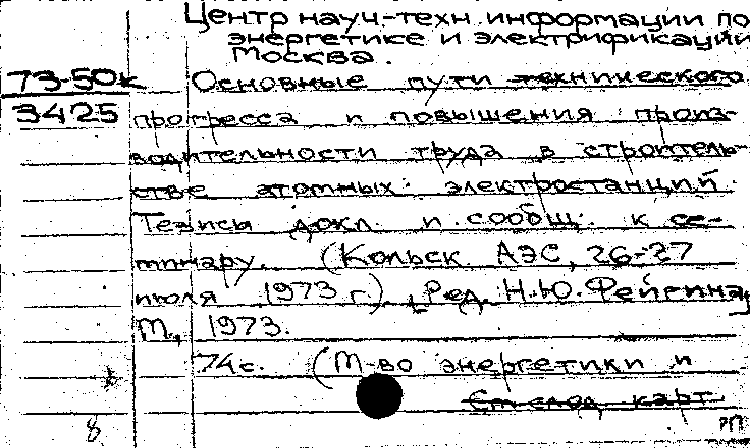 Центр науч-техн. информации по
энергетике и электрификации
Москва.
73-50к Основные пути технического
3425 прогресса и повышения произ-
водительности труда в строитель-
стве атомных электростанций.
Тезисы докл. и сообщ. к се-
минару. (Кольск. АЭС, 26-27
июля 1973 г.) [Ред. Н.Ю. Фейгина]
М., 1973.
74 с. (М-во энергетики и
См след. карт.
8 РП